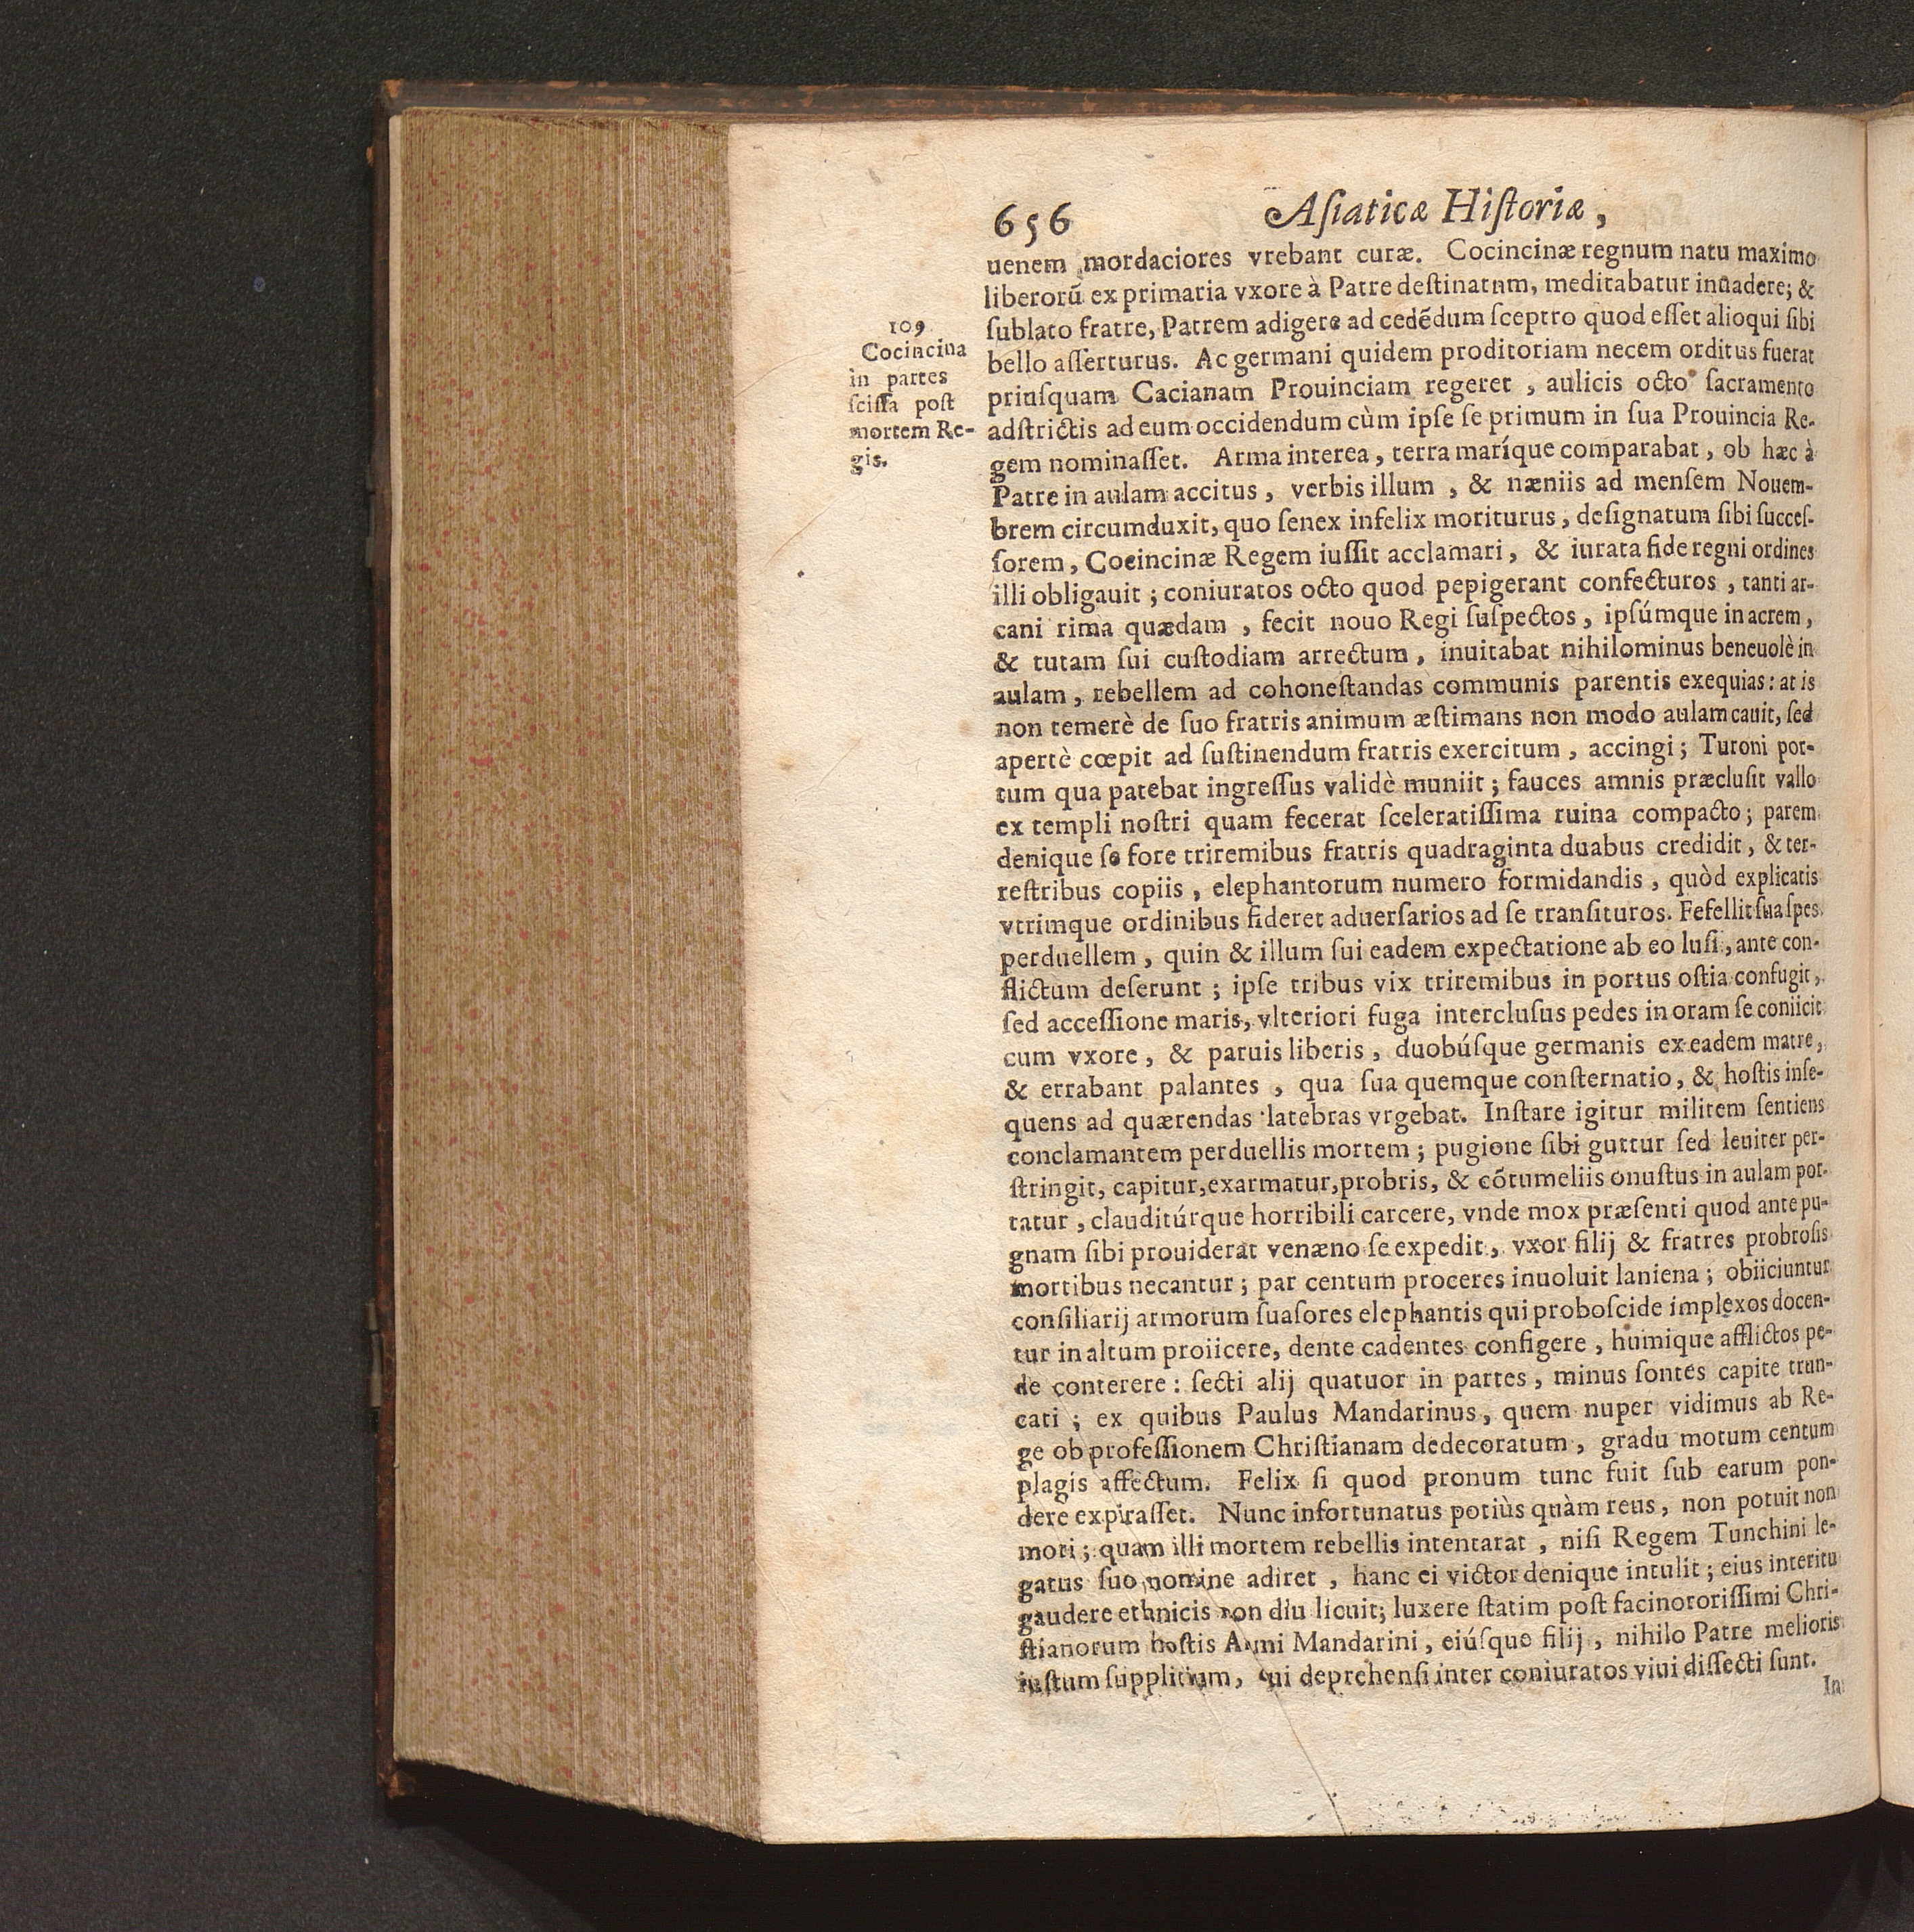 656 Aſiaticæ Hiſtoriæ,
uenem mordaciores vrebant curæ. Cocincinæ regnum natu maximo
liberorũ ex primaria vxore à Patre deſtinatum, meditabatur inuadere; &
ſublato fratre, Patrem adigere ad cedẽdum ſceptro quod eſſet alioqui ſibi
bello aſſerturus. Ac germani quidem proditoriam necem orditus fuerat
priuſquam Cacianam Prouinciam regeret, aulicis octo ſacramento
adſtrictis ad eum occidendum cùm ipſe ſe primum in ſua Prouincia Re-
gem nominaſſet. Arma interea, terra maríque comparabat, ob hæc à
Patre in aulam accitus, verbis illum, & næniis ad menſem Nouem-
brem circumduxit, quo ſenex infelix moriturus, deſignatum ſibi ſucceſ-
ſorem, Cocincinæ Regem iuſſit acclamari, & iurata fide regni ordines
illi obligauit; coniuratos octo quod pepigerant confecturos, tanti ar-
cani rima quædam, fecit nouo Regi ſuſpectos, ipſúmque in acrem,
& tutam ſui cuſtodiam arrectum, inuitabat nihilominus beneuolè in
aulam, rebellem ad cohoneſtandas communis parentis exequias: at is
non temerè de ſuo fratris animum æſtimans non modo aulam cauit, ſed
apertè cœpit ad ſuſtinendum fratris exercitum, accingi; Turoni por-
tum qua patebat ingreſſus validè muniit; fauces amnis præcluſit vallo
ex templi noſtri quam fecerat ſceleratiſſima ruina compacto; parem
denique ſe fore triremibus fratris quadraginta duabus credidit, & ter-
reſtribus copiis, elephantorum numero formidandis, quòd explicatis
vtrimque ordinibus fideret aduerſarios ad ſe tranſituros. Fefellit ſua ſpes
perduellem, quin & illum ſui eadem expectatione ab eo luſi, ante con-
flictum deſerunt; ipſe tribus vix triremibus in portus oſtia confugit,
ſed acceſſione maris, vlteriori fuga intercluſus pedes in oram ſe coniicit
cum vxore, & paruis liberis, duobúſque germanis ex eadem matre,
& errabant palantes, qua ſua quemque conſternatio, & hoſtis inſe-
quens ad quærendas latebras vrgebat. Inſtare igitur militem ſentiens
conclamantem perduellis mortem; pugione ſibi guttur ſed leuiter per-
ſtringit, capitur, exarmatur, probris, & cõtumeliis onuſtus in aulam por-
tatur, clauditúrque horribili carcere, vnde mox præſenti quod ante pu-
gnam ſibi prouiderat venæno ſe expedit, vxor filij & fratres probroſis
mortibus necantur; par centum proceres inuoluit laniena; obiiciuntur
conſiliarij armorum ſuaſores elephantis qui proboſcide implexos docen-
tur in altum proiicere, dente cadentes configere, humique afflictos pe-
de conterere: ſecti alij quatuor in partes, minus ſontes capite trun-
cati; ex quibus Paulus Mandarinus, quem nuper vidimus ab Re-
ge ob profeſſionem Chriſtianam dedecoratum, gradu motum centum
plagis affectum. Felix ſi quod pronum tunc fuit ſub earum pon-
dere expiraſſet. Nunc infortunatus potiùs quàm reus, non potuit non
mori; quam illi mortem rebellis intentarat, niſi Regem Tunchini le-
gatus ſuo nomine adiret, hanc ei victor denique intulit; eius interitu
gaudere ethnicis non diu licuit; luxere ſtatim poſt facinoroſiſſimi Chri-
ſtianorum hoſtis Anni Mandarini, eiúſque filij, nihilo Patre melioris
iuſtum ſupplitium, qui deprehenſi inter coniuratos viui diſſecti ſunt.
In
109
Cocincina
in partes
ſciſſa poſt
mortem Re-
gis.